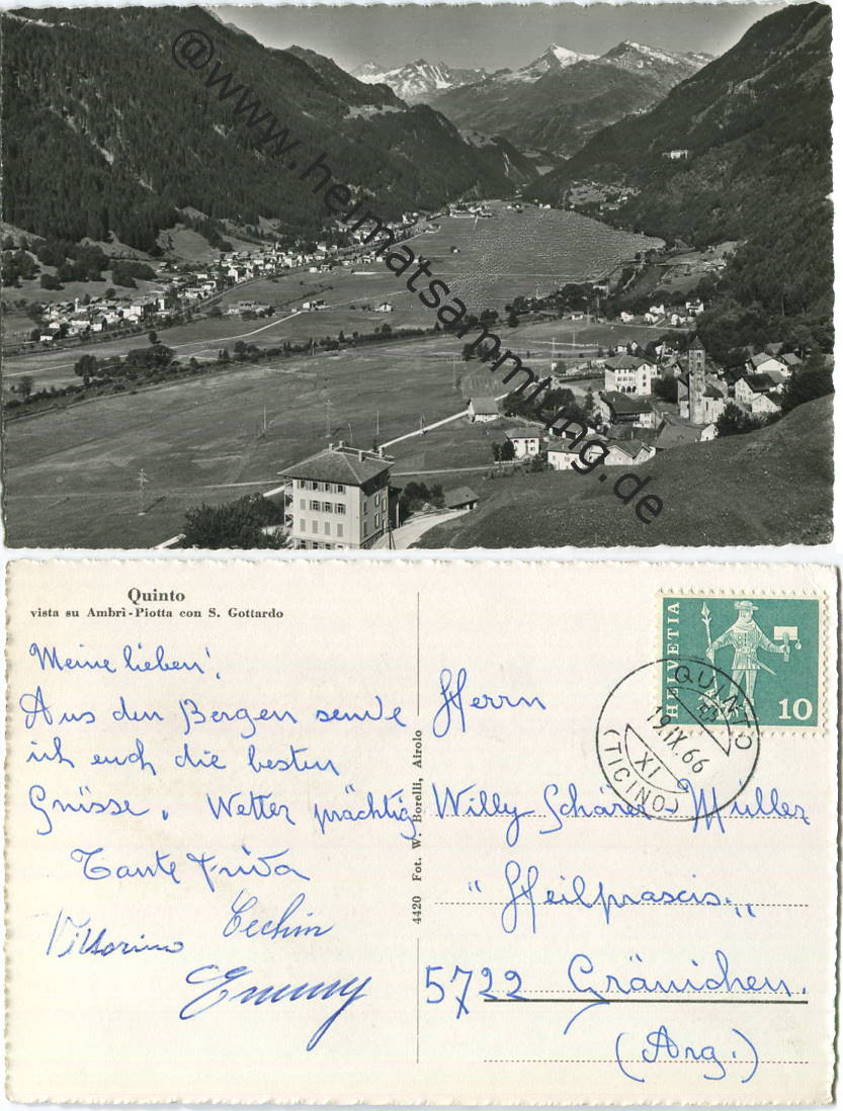 @www.heimatsammlung.de
Quinto
vista su Ambrì-Piotta con S. Gottardo
Meine lieben!
Aus den Bergen sende
ich euch die besten
Grüsse. Wetter prächtig
Tante Frida
Cechin
Vittorino
Emmy
4420 Fot. W. Borelli, Airolo
HELVETIA
10
QUINTO
19.IX.66
XI
(TICINO)
Herrn
Willy Schärer Müller
"Heilpraxis"
5722 Gränichen.
(Arg.)